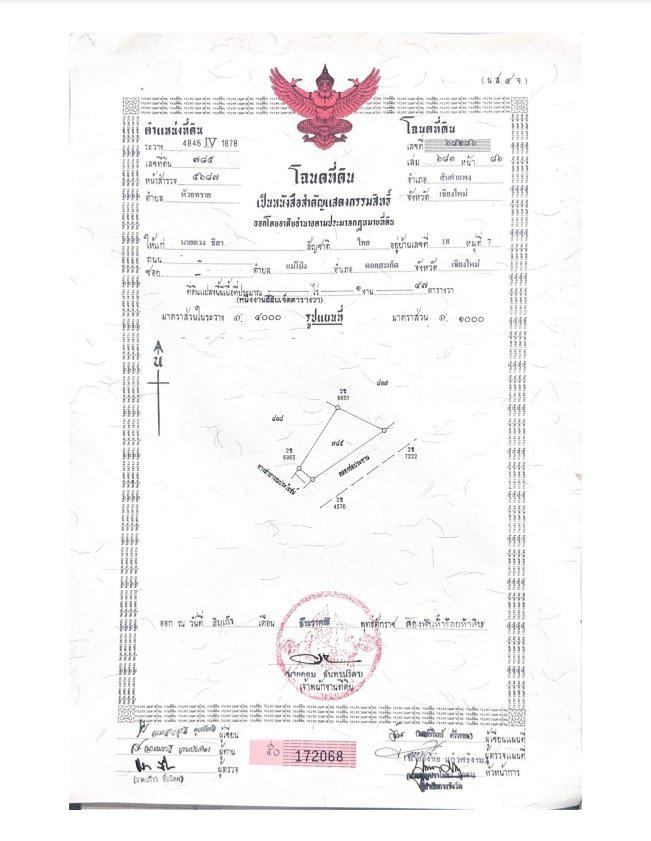 (น.ส.๔ จ.)
ตำแหน่งที่ดิน
ระวาง 4846 IV 1878
เลขที่ดิน ๗๘๕
หน้าสำรวจ ๕๖๘๗
ตำบล ห้วยทราย
โฉนดที่ดิน
เลขที่
เล่ม ๖๘๓ หน้า ๘๖
อำเภอ สันกำแพง
จังหวัด เชียงใหม่
โฉนดที่ดิน
เป็นหนังสือสำคัญแสดงกรรมสิทธิ์
ออกโดยอาศัยอำนาจตามประมวลกฎหมายที่ดิน
ให้แก่ นายดวง สัญชาติ ไทย อยู่บ้านเลขที่ 18 หมู่ที่ 7
ถนน
ซอย - ตำบล แม่โป่ง อำเภอ ดอยสะเก็ด จังหวัด เชียงใหม่
ที่ดินแปลงนี้มีเนื้อที่ประมาณ ไร่ ๑ งาน ๔๗ ตารางวา
(หนึ่งงานสี่สิบเจ็ดตารางวา)
มาตราส่วนในระวาง ๑: ๔๐๐๐ รูปแผนที่ มาตราส่วน ๑: ๑๐๐๐
น
2ช
6601
๘๓๘
๗๘๕
2ช
6965
2ช
7222
ทางสาธารณประโยชน์
คลองชลประทาน
2ช
4570
ออก ณ วันที่ สิบเก้า เดือน พุทธศักราช สองพันห้าร้อยห้าสิบ
เจ้าพนักงานที่ดิน
ผู้เขียน
ผู้ทาน
ผู้ตรวจ
172068
ผู้เขียนแผนที่
ผู้ตรวจแผนที่
หัวหน้าการ